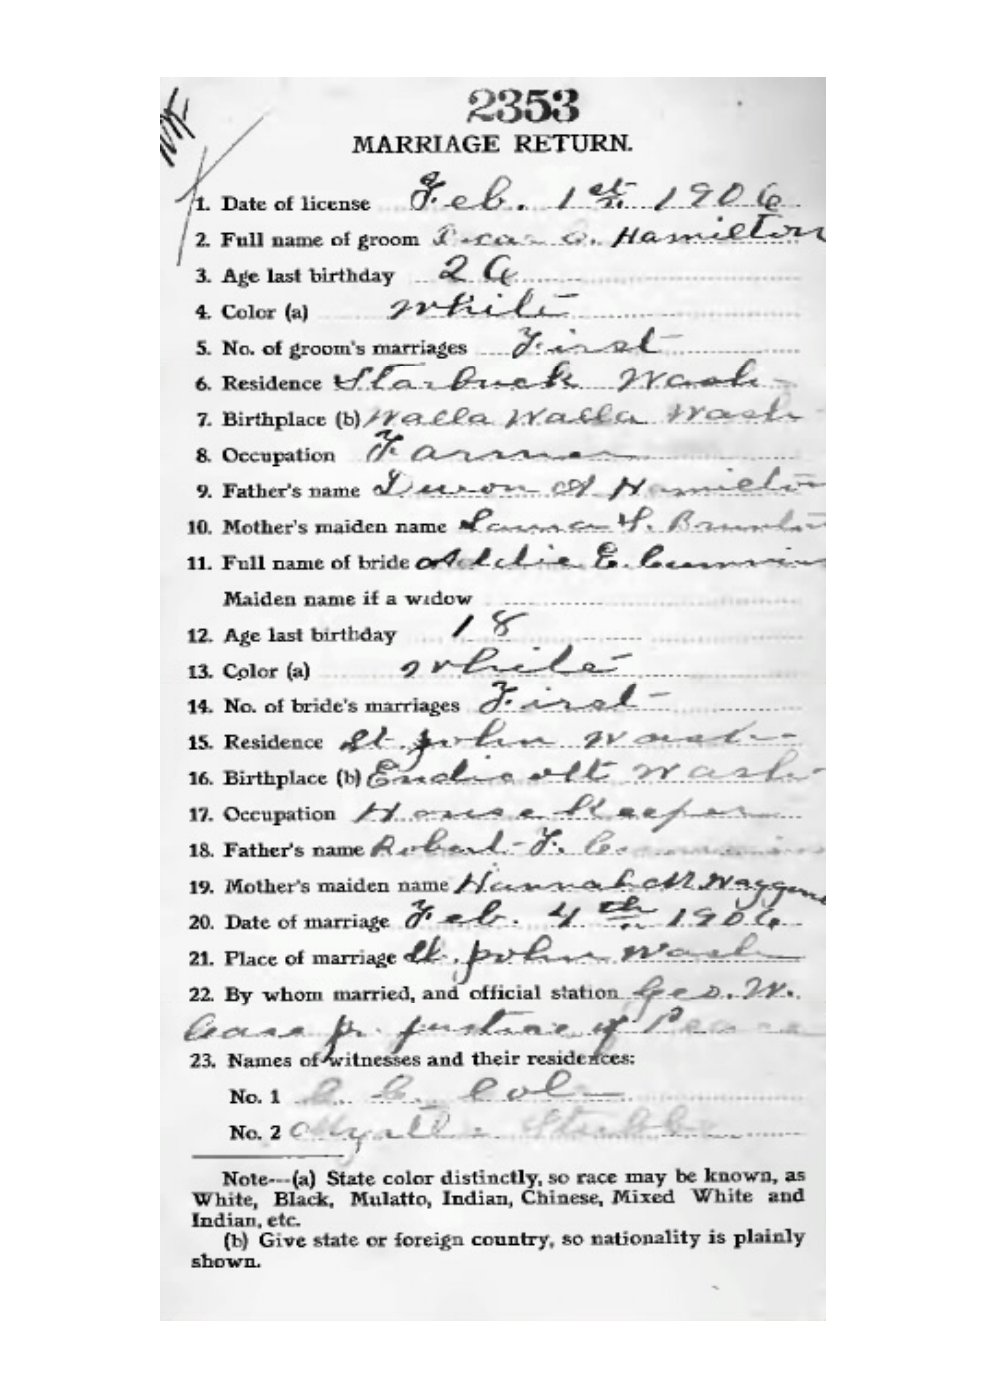 2353
MARRIAGE RETURN.
1. Date of license Feb. 1st 1906
2. Full name of groom Oscar C. Hamilton
3. Age last birthday 26
4. Color (a) White
5. No. of groom's marriages First
6. Residence Starbuck Wash
7. Birthplace (b) Walla Walla Wash
8. Occupation Farmer
9. Father's name A Hamilton
10. Mother's maiden name
11. Full name of bride Addie E. Cummins
Maiden name if a widow
12. Age last birthday 18
13. Color (a) White
14. No. of bride's marriages First
15. Residence St. John Wash
16. Birthplace (b) Endicott Wash
17. Occupation House Keeper
18. Father's name Robert F. Cummins
19. Mother's maiden name Hannah M.
20. Date of marriage Feb. 4th 1906
21. Place of marriage St. John Wash
22. By whom married, and official station Geo. W.
Case Jr. Justice of Peace
23. Names of witnesses and their residences:
No. 1 C. Cole
No. 2 Myrtle
Note---(a) State color distinctly, so race may be known, as
White, Black, Mulatto, Indian, Chinese, Mixed White and
Indian, etc.
(b) Give state or foreign country, so nationality is plainly
shown.